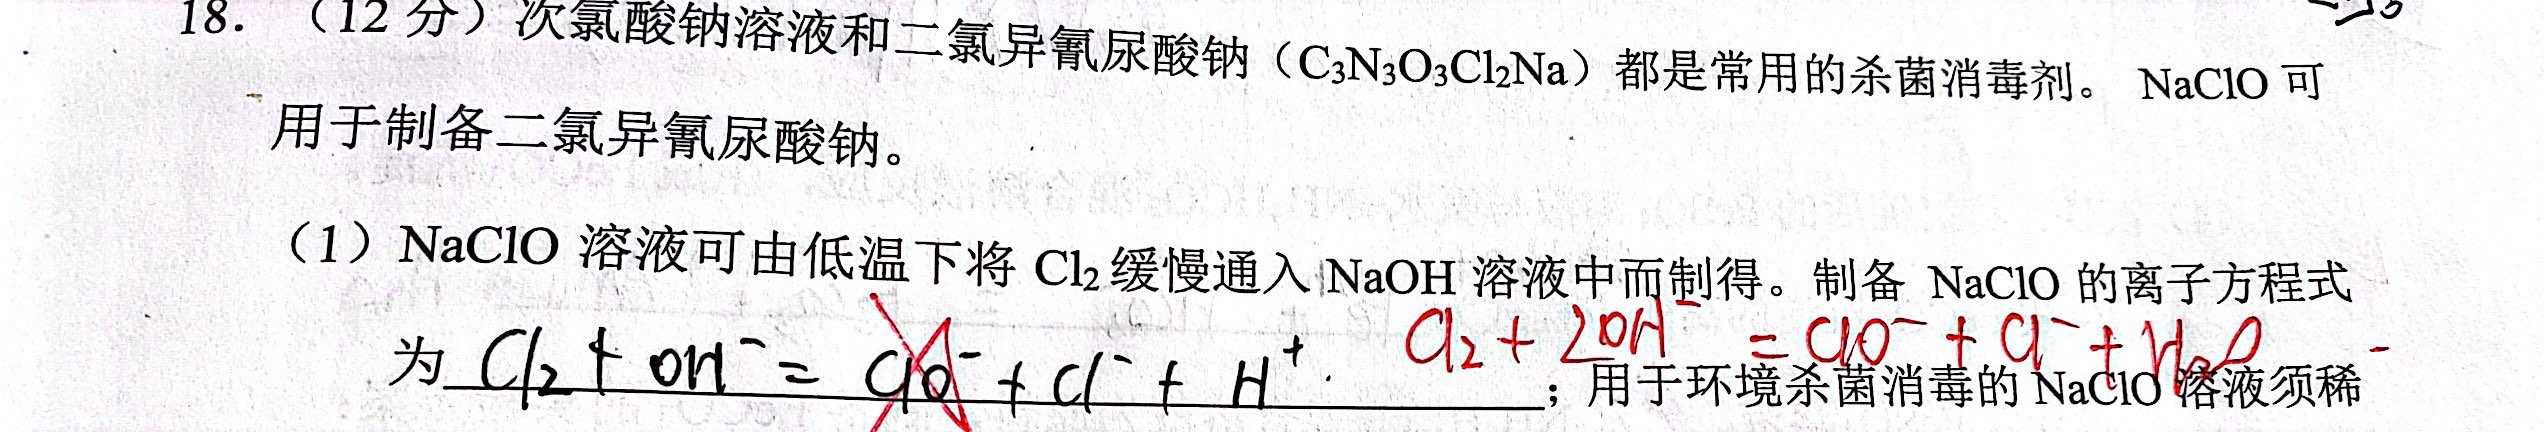 18. （12 分）次氯酸钠溶液和二氯异氰尿酸钠（C₃N₃O₃Cl₂Na）都是常用的杀菌消毒剂。 NaClO 可
用于制备二氯异氰尿酸钠。
（1）NaClO 溶液可由低温下将 Cl₂ 缓慢通入 NaOH 溶液中而制得。制备 NaClO 的离子方程式
Cl₂ + 2OH⁻ = ClO⁻ + Cl⁻ + H₂O
为 Cl₂ + OH⁻ = ClO⁻ + Cl⁻ + H⁺ ；用于环境杀菌消毒的 NaClO 溶液须稀